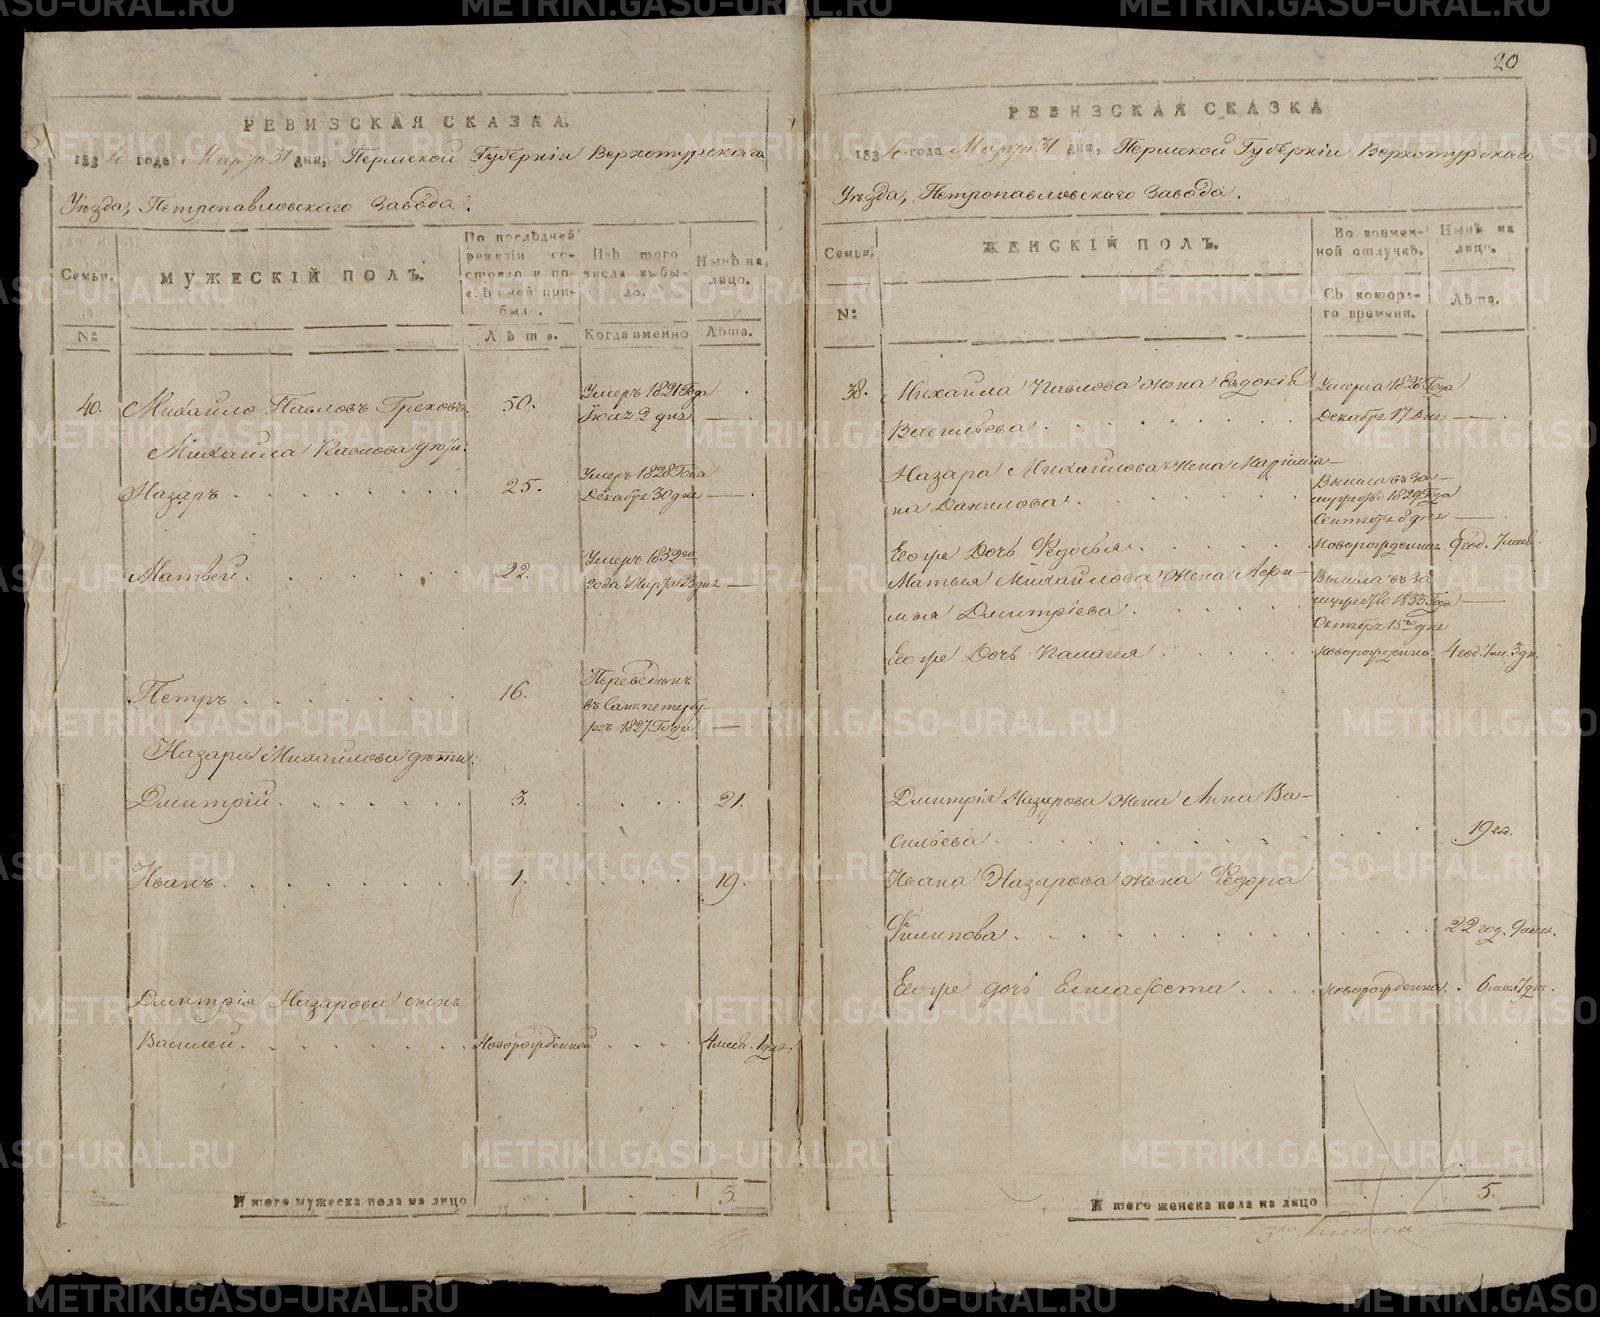 20
РЕВИЗСКАЯ СКАЗКА.
1834 года Марта 31 дня, Пермской Губернiи Верхотурскаго
Уѣзда, Петропавловскаго Завода.
Семьи.
№
МУЖЕСКIЙ ПОЛЪ.
По послѣдней
ревизiи со-
стояло и по-
слѣ оной при-
было.
Лѣта.
Изъ того
числа выбы-
ло.
Когда именно
Нынѣ на
лицо.
Лѣта.
40. Михайло Павловъ Греховъ. 50. Умеръ 1821 Года
Iюля 2 дня —
Михайла Павлова дѣти:
Назаръ 25. Умеръ 1828 Года
Декабря 30 дня —
Матвей 22. Умеръ 1832го
года Марта 23 дня —
Петръ 16. Переведенъ
въ Санктпетербу
ргъ 1827 Года —
Назара Михайлова дѣти:
Дмитрiй 3. 21.
Иванъ 1. 19.
Дмитрiя Назарова сынъ
Василей Новорожденной 4 мѣся. 1 дня.
Итого мужеска пола на лицо 3.
РЕВИЗСКАЯ СКАЗКА
1834 года Марта 31 дня, Пермской Губернiи Верхотурскаго
Уѣзда, Петропавловскаго Завода.
Семьи.
№
ЖЕНСКIЙ ПОЛЪ.
Во времен-
ной отлучкѣ.
Съ котора-
го времени.
Нынѣ на
лицо.
Лѣта.
38. Михайла Павлова жена Евдокiя Умерла 1826 Года
Васильева Декабря 17 дня —
Назара Михайлова жена Марiямiя-
на Данилова Вышла въ за-
мужство 1829 Года
Сентября 8 дня —
Егоже Дочь Федосья новорожденная 9 год. 7 мѣся.
Матвея Михайлова жена Афи-
мья Дмитрiева Вышла въ за
мужство 1833 Года —
Октября 15го дня
Егоже Дочь Палагея новорожденна. 4 год. 7 м. 3 дн.
Дмитрiя Назарова жена Анна Ва-
сильева 19 год.
Ивана Назарова жена Федора
Филипова 22 год. 9 мѣся.
Егоже дочь Елисафета новорожденна. 6 мѣся. 7 дн.
Итого женска пола на лицо 5.